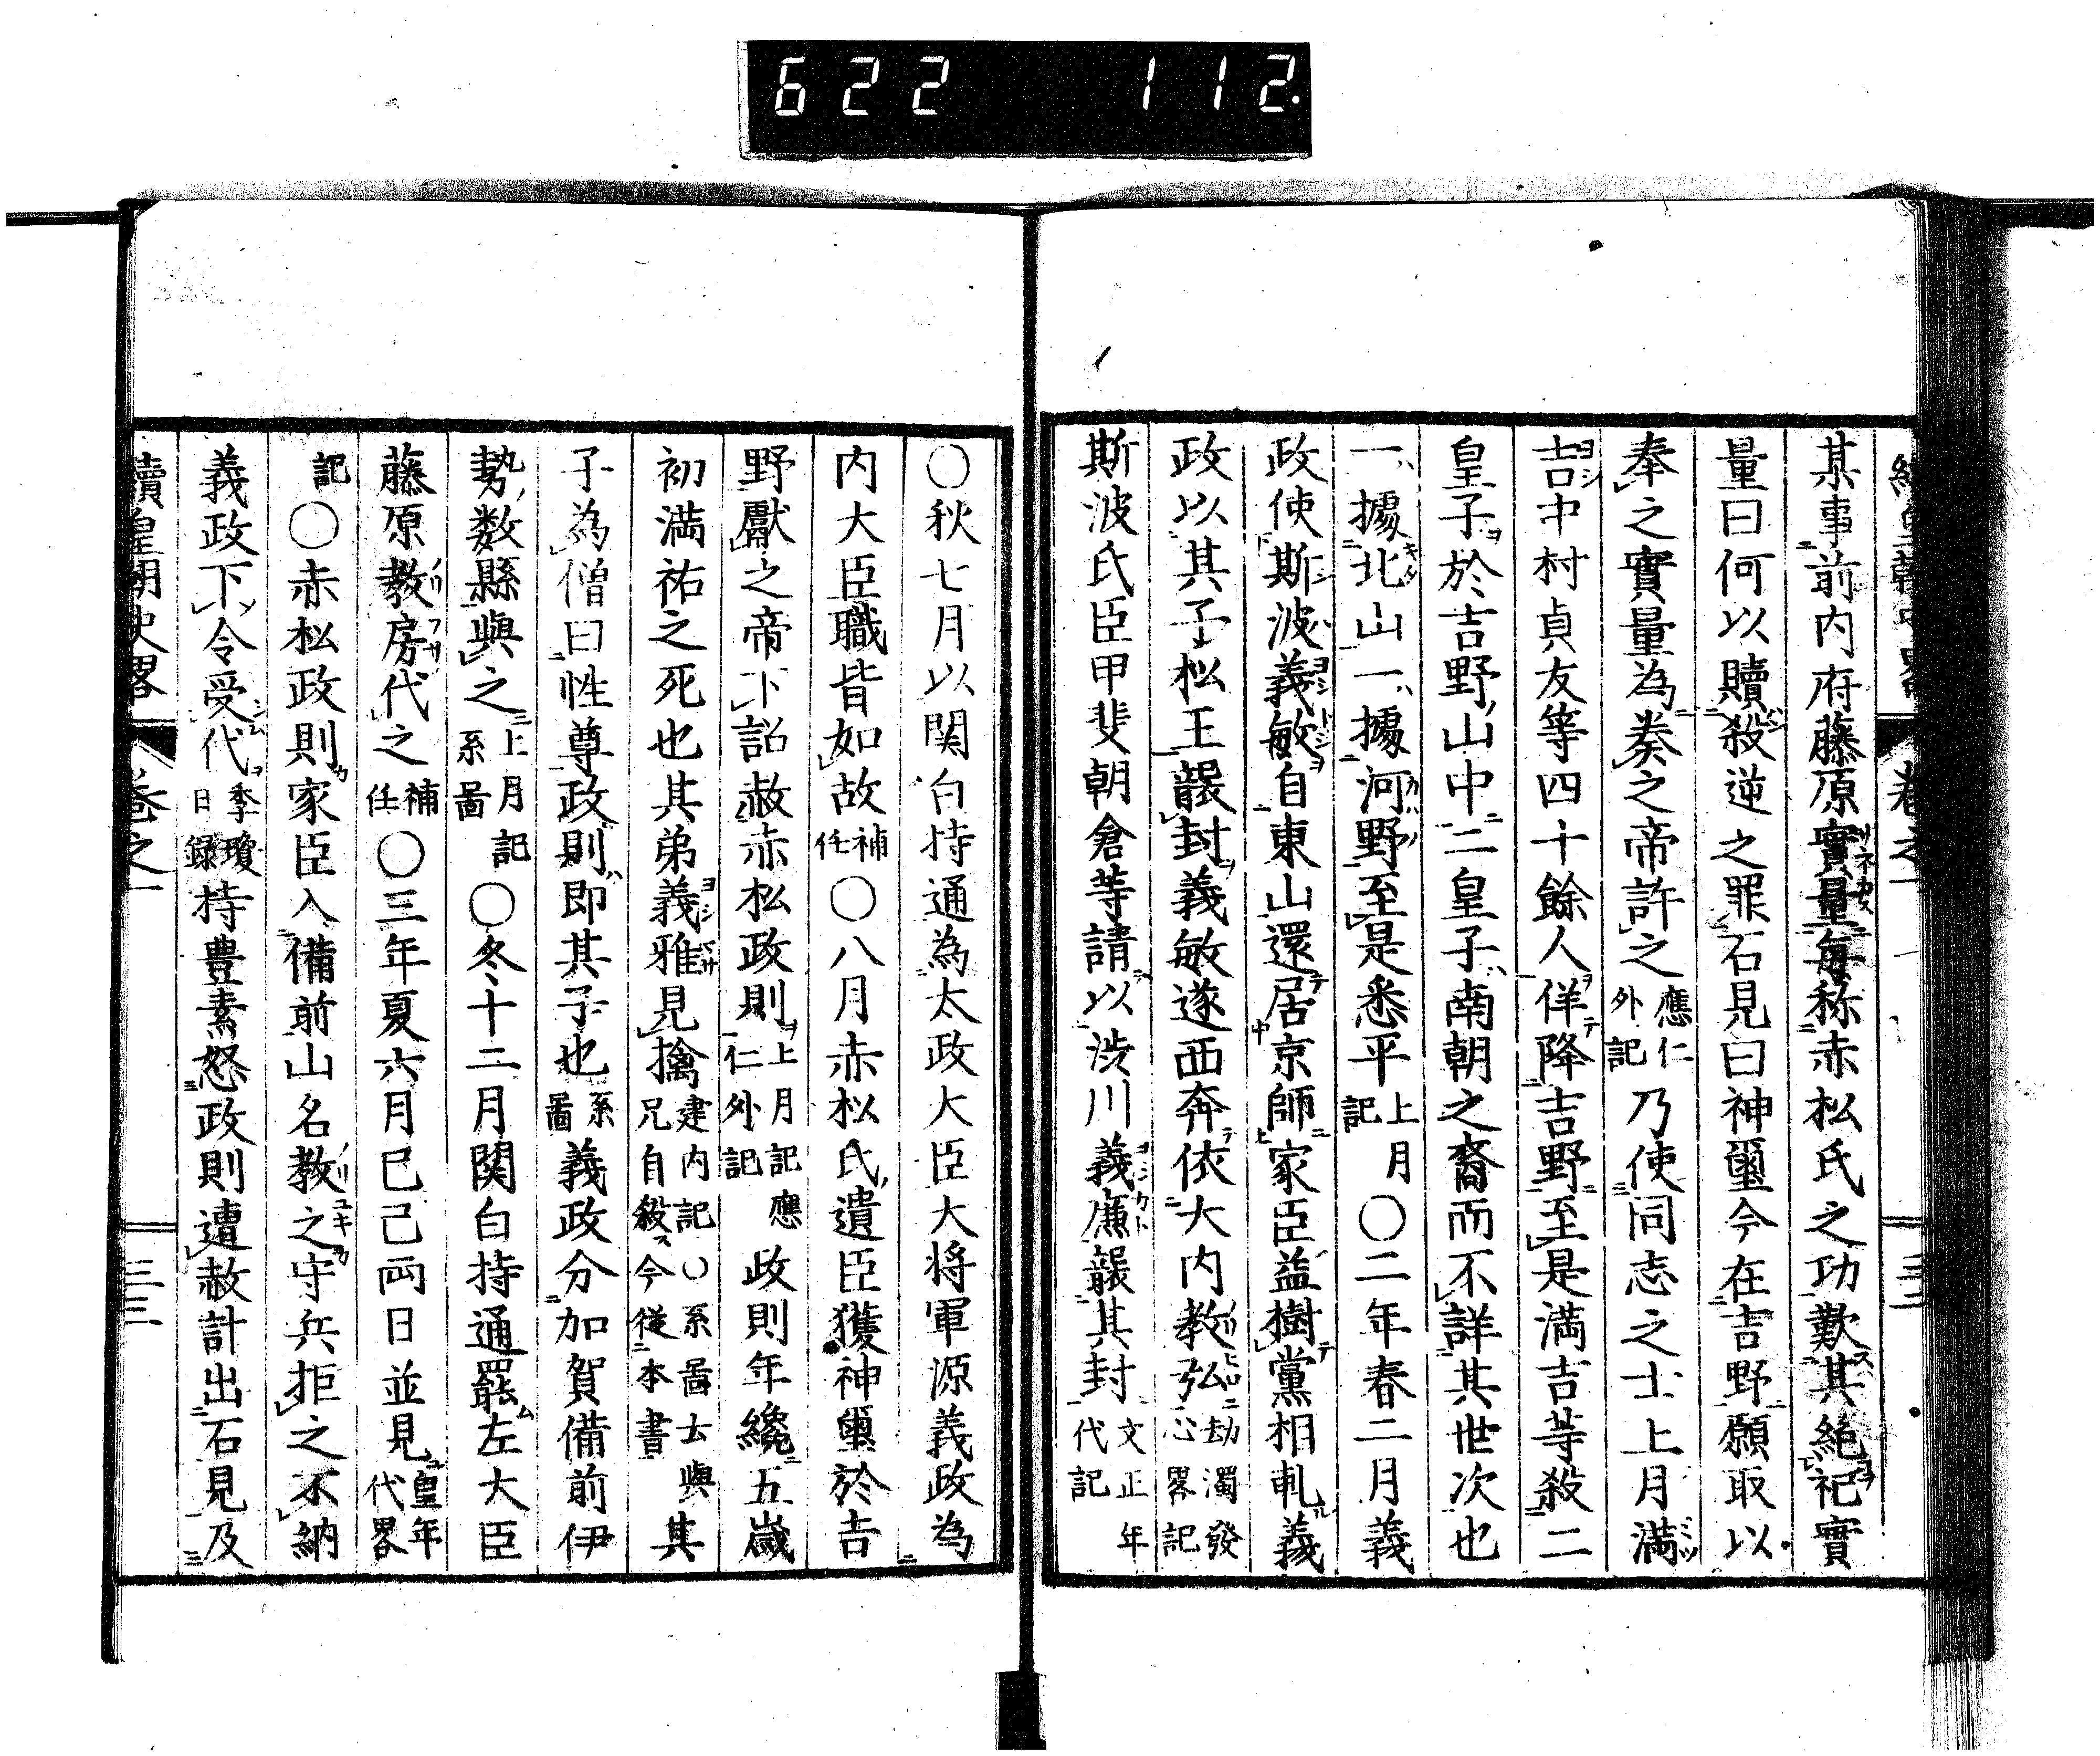 622 112
某事前内府藤原實量每称赤松氏之功歎其絶祀實
量曰何以贖殺逆之罪石見曰神璽今在吉野願取以
奉之實量為奏之帝許之應仁外記乃使同志之士上月満
吉中村貞友等四十餘人佯降吉野至是満吉等殺二
皇子於吉野山中二皇子南朝之裔而不詳其世次也
一據北山一據河野至是悉平上月記〇二年春二月義
政使斯波義敏自東山還居京師家臣益樹黨相軋義
政以其子松王襲封義敏遂西奔依大内教弘劫濁發心畧記
斯波氏臣甲斐朝倉等請以渋川義廉襲其封文正年代記
〇秋七月以関白持通為太政大臣大将軍源義政為
内大臣職皆如故補任〇八月赤松氏遺臣獲神璽於吉
野獻之帝下詔赦赤松政則上月記應仁外記政則年纔五歳
初満祐之死也其弟義雅見擒建内記〇系圖云與其兄自殺今從本書
子為僧曰性尊政則即其子也系圖義政分加賀備前伊
勢数縣與之上月記系圖〇冬十二月関白持通罷左大臣
藤原教房代之補任〇三年夏六月巳己両日並見皇年代畧
記〇赤松政則家臣入備前山名教之守兵拒之不納
義政下令受代季瓊日録持豊素怒政則遭赦計出石見及
續皇朝史畧 卷之一 三二